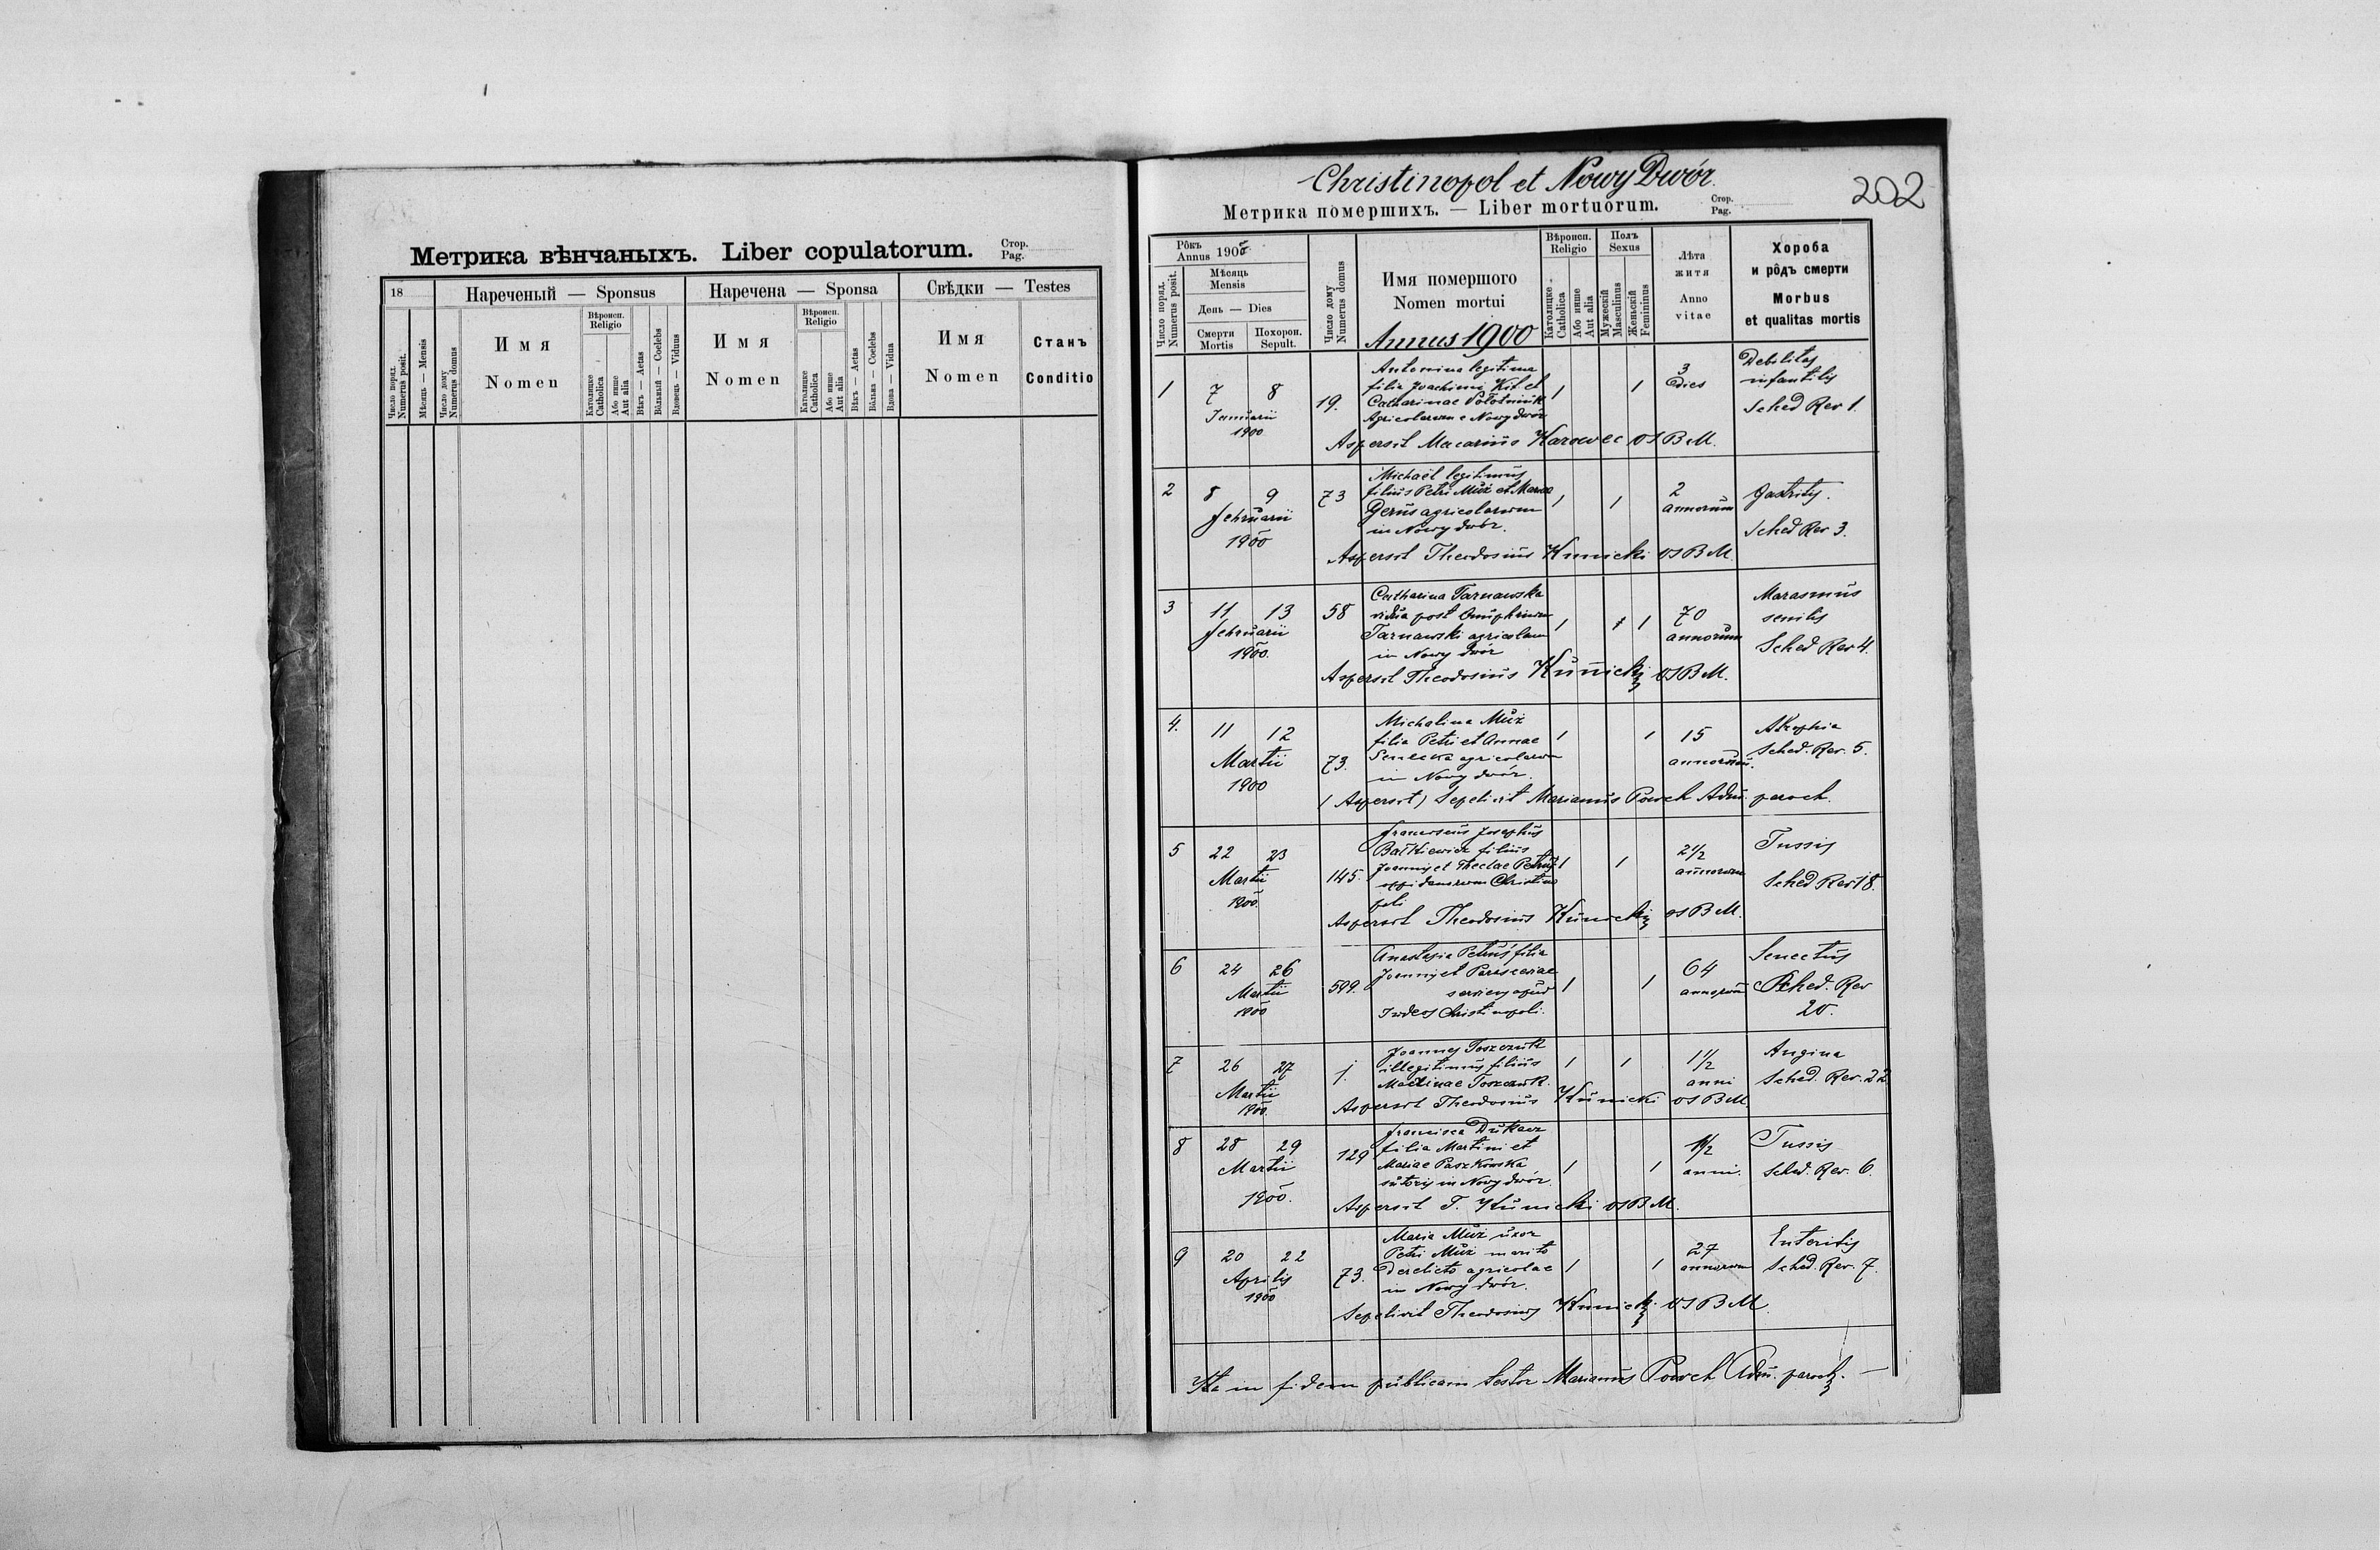 Метрика вѣнчаныхъ. Liber copulatorum.
Стор.
Pag.
18
Нареченый — Sponsus
Наречена — Sponsa
Свѣдки — Testes
Число поряд.
Numerus posit.
Мѣсяць — Mensis
Число дому
Numerus domus
Имя
Nomen
Вѣроисп.
Religio
Католицке
Catholica
Або инше
Aut alia
Вѣкъ — Aetas
Вôльный — Coelebs
Вдовець — Viduus
Имя
Nomen
Вѣроисп.
Religio
Католицке
Catholica
Або инше
Aut alia
Вѣкъ — Aetas
Вôльна — Coelebs
Вдова — Vidua
Имя
Nomen
Станъ
Conditio
Christinopol et Nowy Dwór.
202
Метрика помершихъ. — Liber mortuorum.
Стор.
Pag.
Рôкъ
Annus 1900
Число поряд.
Numerus posit.
Мѣсяць
Mensis
День — Dies
Смерти
Mortis
Похорон.
Sepult.
Число дому
Numerus domus
Имя помершого
Nomen mortui
Annus 1900
Вѣроисп.
Religio
Католицке
Catholica
Або инше
Aut alia
Полъ
Sexus
Мужескій
Masculinus
Женьскій
Femininus
Лѣта
житя
Anno
vitae
Хороба
и рôдъ смерти
Morbus
et qualitas mortis
1
7 8
Januarii
1900
19.
Antonina legitima
filia Joachimi Kit et
Catharinae Połotniuk
Agricolarum e Nowy dwór
1 1
3
dies
Debilitas
infantilis
Sched Rev 1.
Aspersit Macarius Karowec OSBM.
2
8 9
Februarii
1900
73
Michael legitimus
filius Petri Muż et Maria
Gerus agricolarum
in Nowy dwór.
1 1
2
annorum
Gastritis.
Sched Rev 3.
Aspersit Theodosius Kunicki OSBM.
3
11 13
Februarii
1900.
58
Catharina Tarnawska
vidua post Onuphrium
Tarnawski agricolam
in Nowy dwór
1 1
70
annorum
Marasmus
senilis
Sched Rev 4.
Aspersit Theodosius Kunicki OSBM.
4.
11 12
Martii
1900
73.
Michalina Muż
filia Petri et Annae
agricolarum
in Nowy dwór.
1 1
15
annorum.
Atrophia
Sched. Rev. 5.
(Aspersit) Sepelivit Marianus Powch Adm. paroch.
5
22 23
Martii
1900.
145.
Franciscus Josephus
filius
Joannis et Theclae Petruś
oppidanorum Christino
poli
1 1
2 1/2
annorum
Tussis
Sched Rev 18.
Aspersit Theodosius Kunicki OSBM.
6
24 26
Martii
1900
599.
Anastasia Petruś filia
Joannis et Parasceviae
serviens apud
Judeos Christinopoli.
1 1
64
annorum
Senectus
Sched. Rev
20.
7
26 27
Martii
1900.
1.
Joannes Toszczuk
illegitimus filius
Toszczuk.
1 1
1 1/2
anni
Angina
Sched. Rev. 22
Aspersit Theodosius Kunicki OSBM.
8
28 29
Martii
1900.
129
Francisca Drukacz
filia Martini et
Mariae Paszkowska
sutoris in Nowy dwór.
1 1
1 1/2
anni.
Tussis
Sched. Rev. 6.
Aspersit T. Kunicki OSBM.
9
20 22
Aprilis
1900
73.
Maria Muż uxor
Petri Muż marito
derelicto agricolae
in Nowy dwór.
1 1
27
annorum
Enteritis
Sched. Rev. 7.
Sepelivit Theodosius Kunicki OSBM.
Ita in fidem publicam testor Marianus Powch Adm. paroch. —